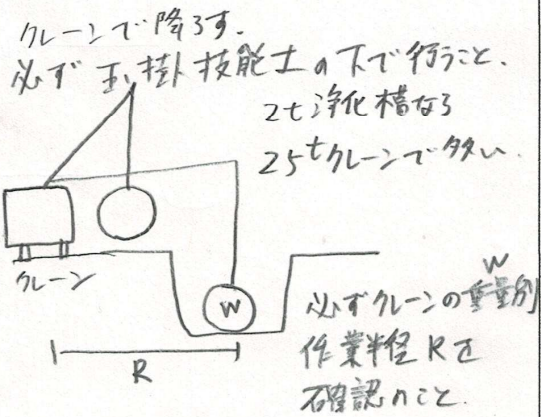 クレーンで降ろす.
必ず 玉掛技能士の下で行うこと.
2t浄化槽なら
25tクレーンで多い.
クレーン
W
R
W
必ずクレーンの重量別
作業半径Rを
確認のこと.